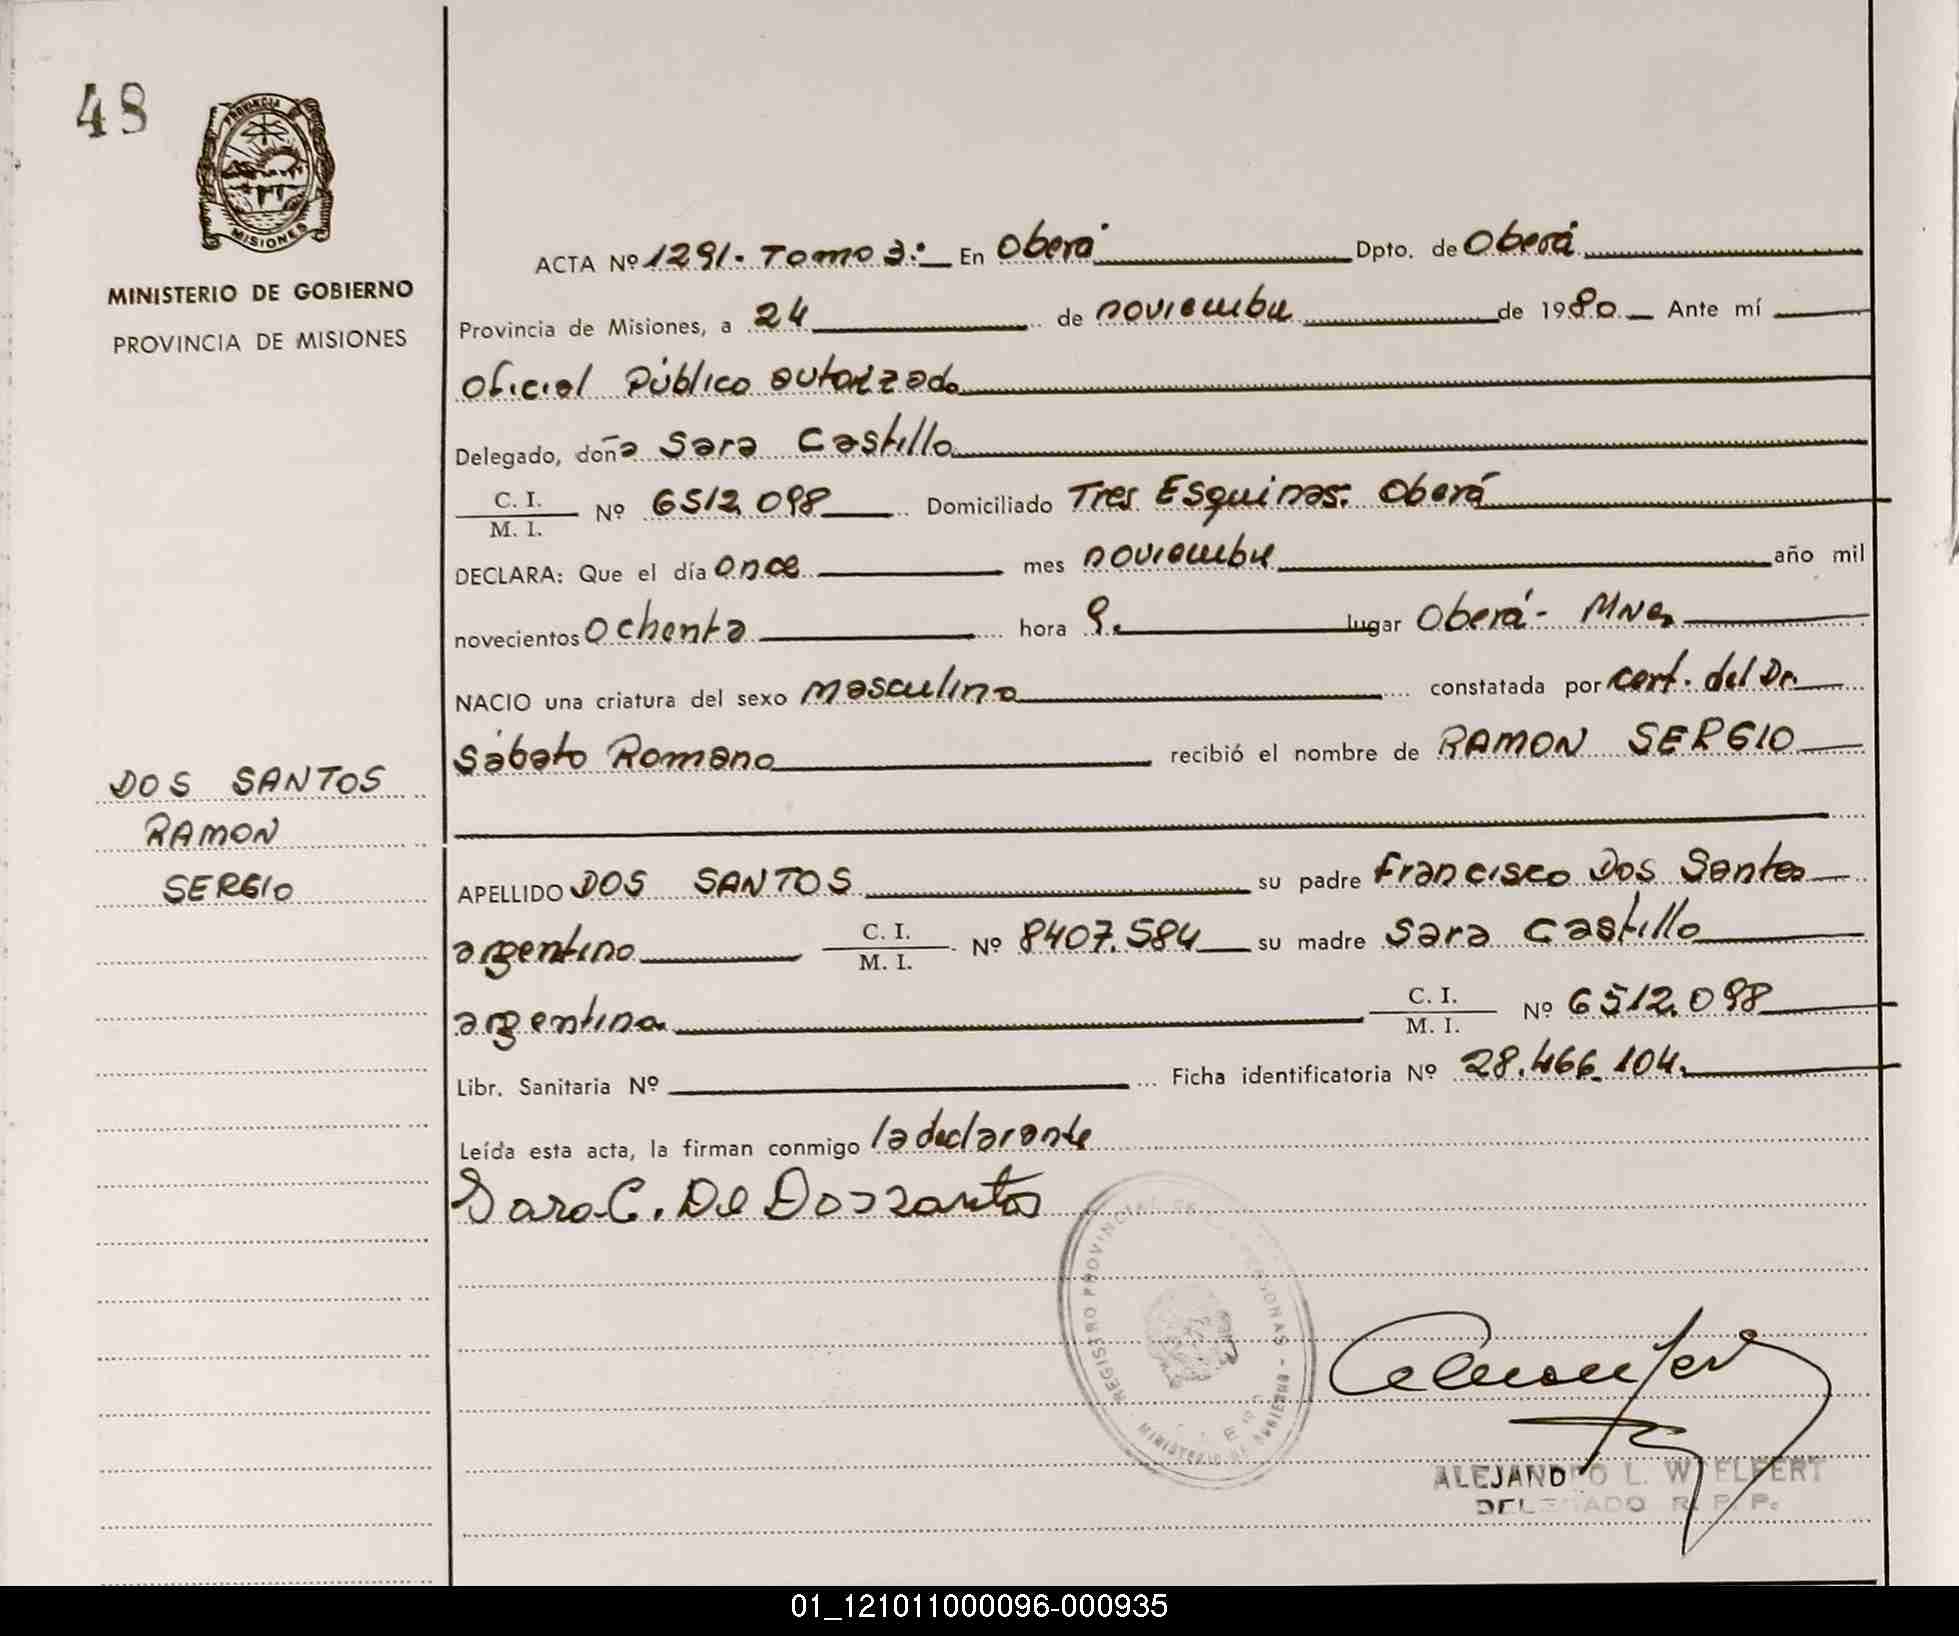 48
PROVINCIA
MISIONES
MINISTERIO DE GOBIERNO
PROVINCIA DE MISIONES
ACTA Nº 1291. Tomo 3: En Oberá Dpto. de Oberá
Provincia de Misiones, a 24 de noviembre de 1980 Ante mí
Oficial Público autorizado
Delegado, doña Sara Castillo
C. I.
M. I. Nº 6512.098 Domiciliado Tres Esquinas. Oberá
DECLARA: Que el día once mes noviembre año mil
novecientos ochenta hora 9. lugar Oberá - Mnes
NACIO una criatura del sexo masculino constatada por cert. del Dr.
Sábato Romano recibió el nombre de RAMON SERGIO
DOS SANTOS
RAMON
SERGIO
APELLIDO DOS SANTOS su padre Francisco Dos Santos
argentino C. I.
M. I. Nº 8407.584 su madre Sara Castillo
argentina C. I.
M. I. Nº 6512.098
Libr. Sanitaria Nº Ficha identificatoria Nº 28.466.104.
Leída esta acta, la firman conmigo la declarante
Sara C. De Dos santos
REGISTRO PROVINCIAL DE PERSONAS
MINISTERIO DE GOBIERNO
ALEJANDRO L. WELFERT
DELEGADO R. P. P.
01_121011000096-000935